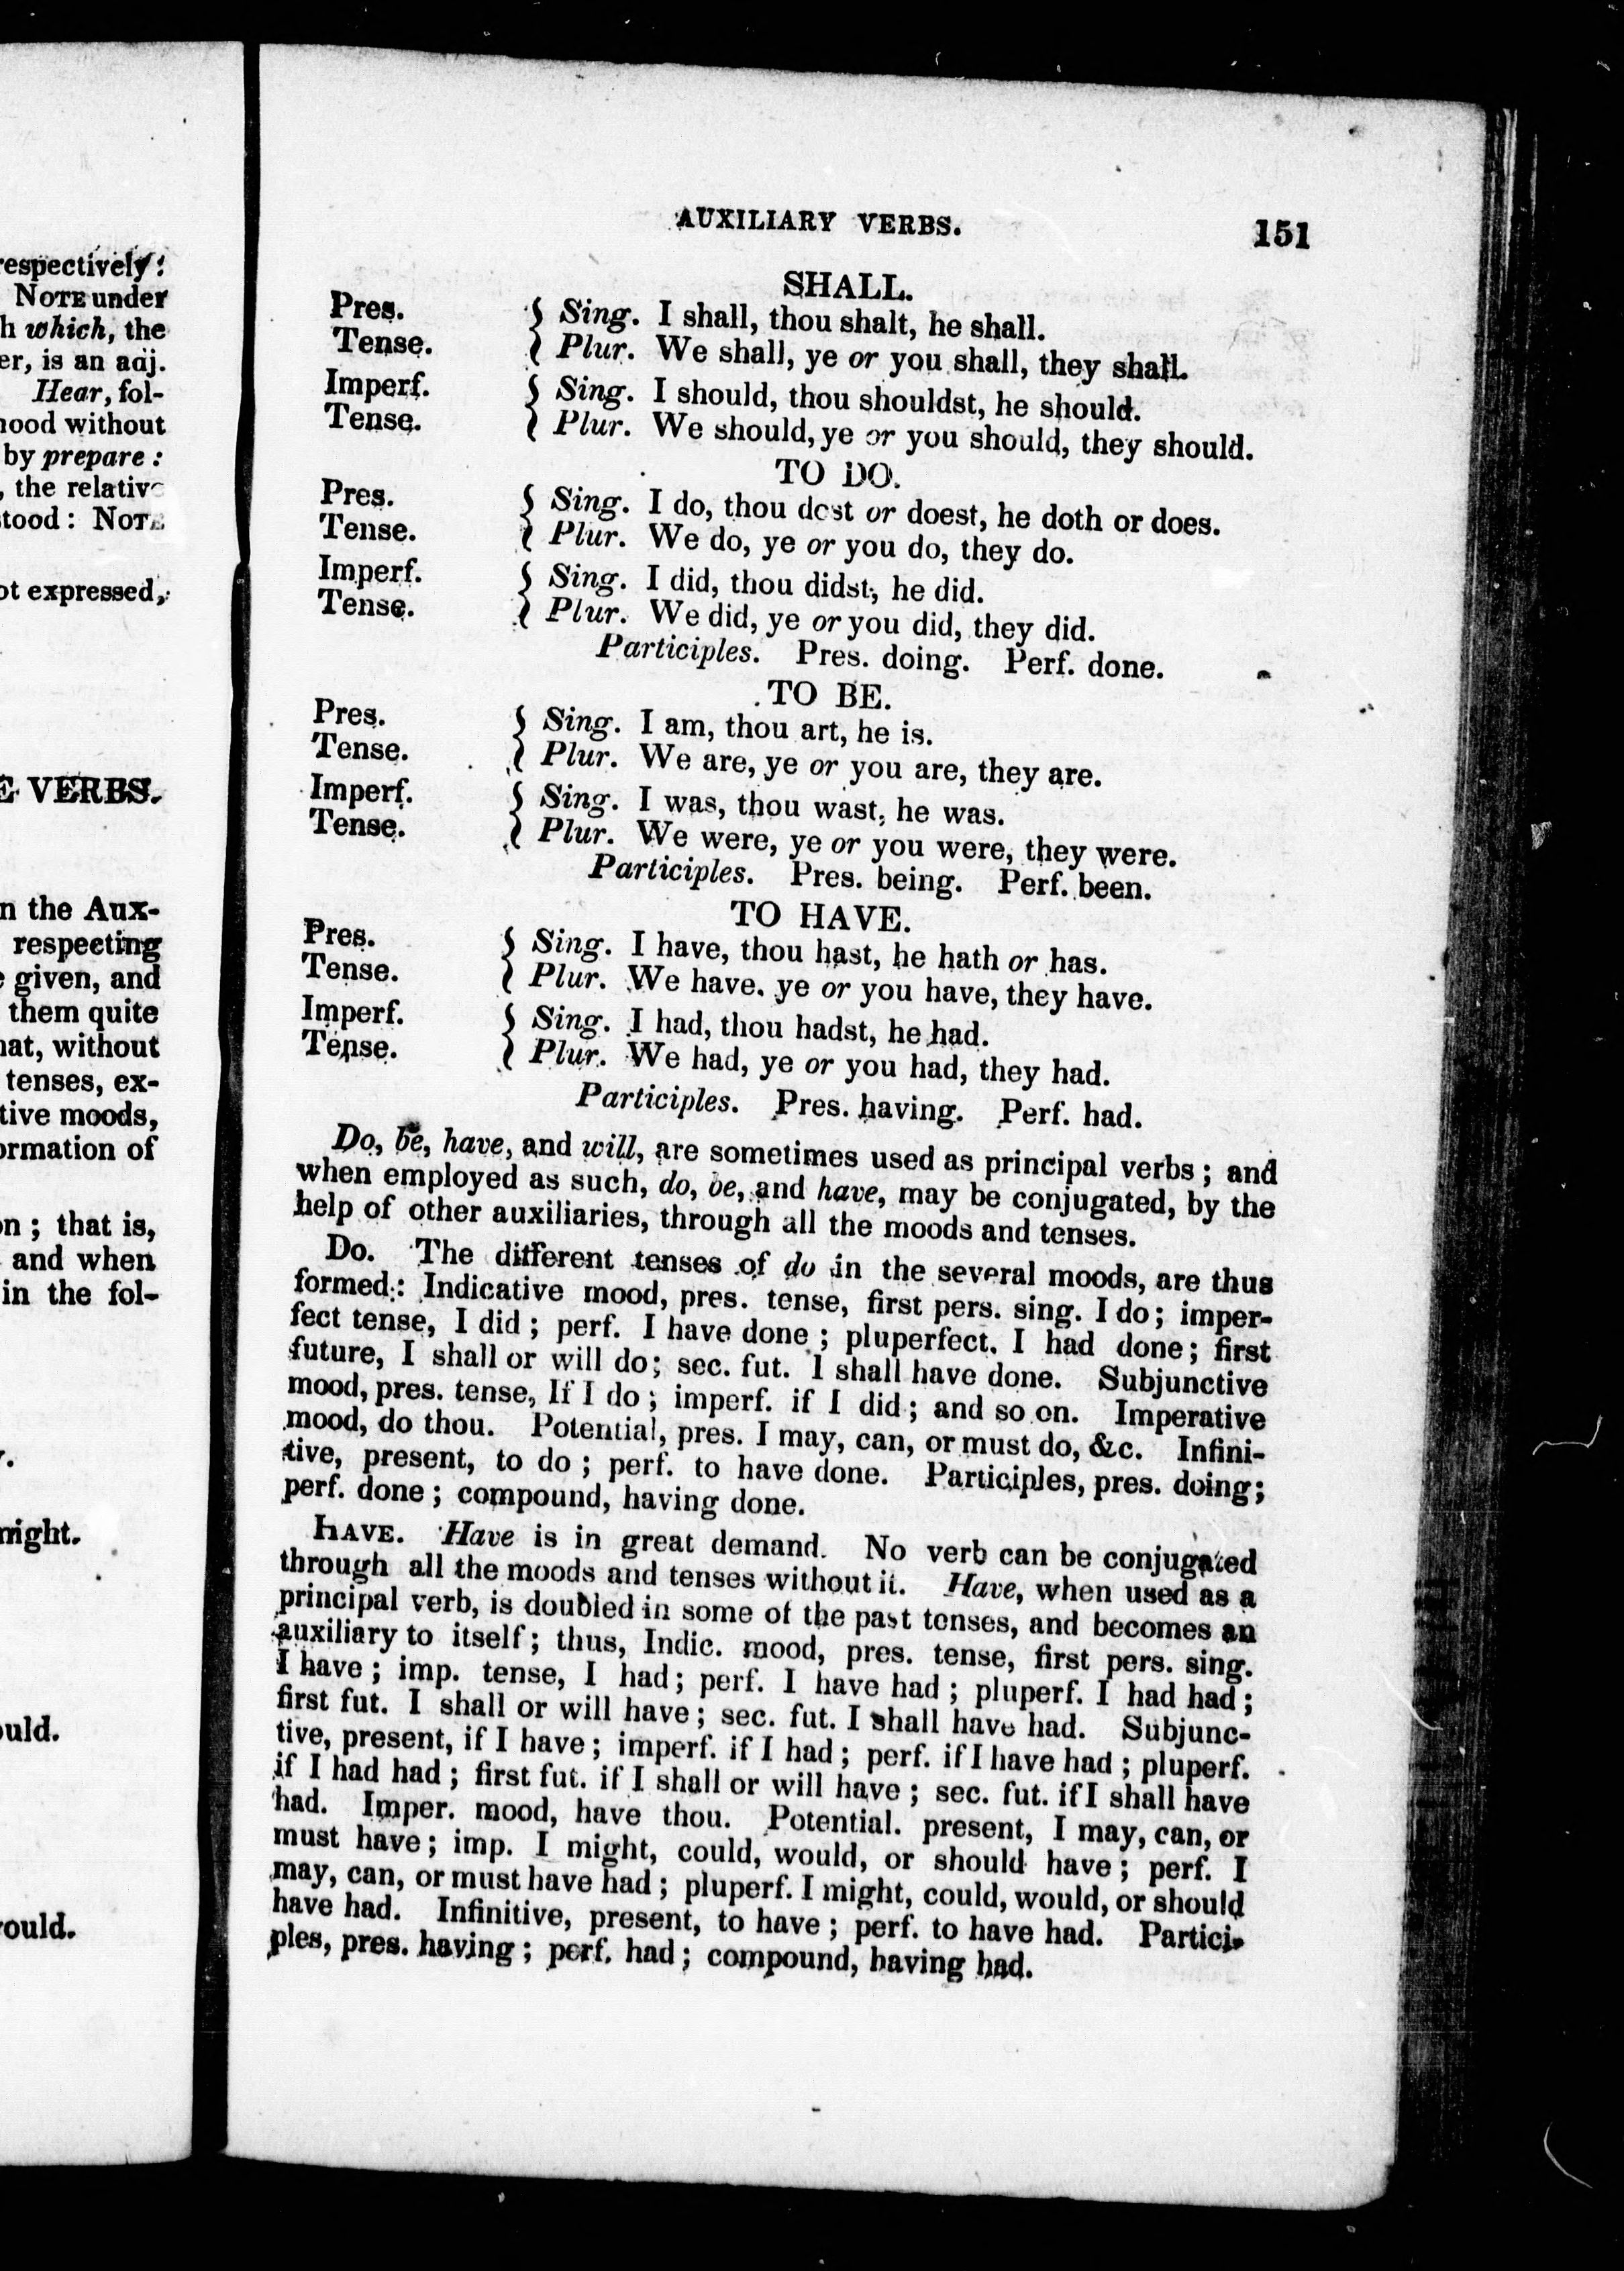 respectively:
NOTE under
h which, the
er, is an adj.
Hear, fol-
nood without
by prepare:
, the relative
stood: NOTE
ot expressed,
E VERBS.
n the Aux-
respecting
e given, and
them quite
nat, without
tenses, ex-
tive moods,
ormation of
on; that is,
and when
in the fol-
r.
might.
ould.
ould.
AUXILIARY VERBS. 151
SHALL.
Pres. Tense. { Sing. I shall, thou shalt, he shall.
Plur. We shall, ye or you shall, they shall.
Imperf. Tense. { Sing. I should, thou shouldst, he should.
Plur. We should, ye or you should, they should.
TO DO.
Pres. Tense. { Sing. I do, thou dost or doest, he doth or does.
Plur. We do, ye or you do, they do.
Imperf. Tense. { Sing. I did, thou didst, he did.
Plur. We did, ye or you did, they did.
Participles. Pres. doing. Perf. done.
TO BE.
Pres. Tense. { Sing. I am, thou art, he is.
Plur. We are, ye or you are, they are.
Imperf. Tense. { Sing. I was, thou wast, he was.
Plur. We were, ye or you were, they were.
Participles. Pres. being. Perf. been.
TO HAVE.
Pres. Tense. { Sing. I have, thou hast, he hath or has.
Plur. We have. ye or you have, they have.
Imperf. Tense. { Sing. I had, thou hadst, he had.
Plur. We had, ye or you had, they had.
Participles. Pres. having. Perf. had.
Do, be, have, and will, are sometimes used as principal verbs; and
when employed as such, do, be, and have, may be conjugated, by the
help of other auxiliaries, through all the moods and tenses.
DO. The different tenses of do in the several moods, are thus
formed: Indicative mood, pres. tense, first pers. sing. I do; imper-
fect tense, I did; perf. I have done; pluperfect. I had done; first
future, I shall or will do; sec. fut. I shall have done. Subjunctive
mood, pres. tense, If I do; imperf. if I did; and so on. Imperative
mood, do thou. Potential, pres. I may, can, or must do, &c. Infini-
tive, present, to do; perf. to have done. Participles, pres. doing;
perf. done; compound, having done.
HAVE. Have is in great demand. No verb can be conjugated
through all the moods and tenses without it. Have, when used as a
principal verb, is doubled in some of the past tenses, and becomes an
auxiliary to itself; thus, Indic. mood, pres. tense, first pers. sing.
I have; imp. tense, I had; perf. I have had; pluperf. I had had;
first fut. I shall or will have; sec. fut. I shall have had. Subjunc-
tive, present, if I have; imperf. if I had; perf. if I have had; pluperf.
if I had had; first fut. if I shall or will have; sec. fut. if I shall have
had. Imper. mood, have thou. Potential. present, I may, can, or
must have; imp. I might, could, would, or should have; perf. I
may, can, or must have had; pluperf. I might, could, would, or should
have had. Infinitive, present, to have; perf. to have had. Partici-
ples, pres. having; perf. had; compound, having had.